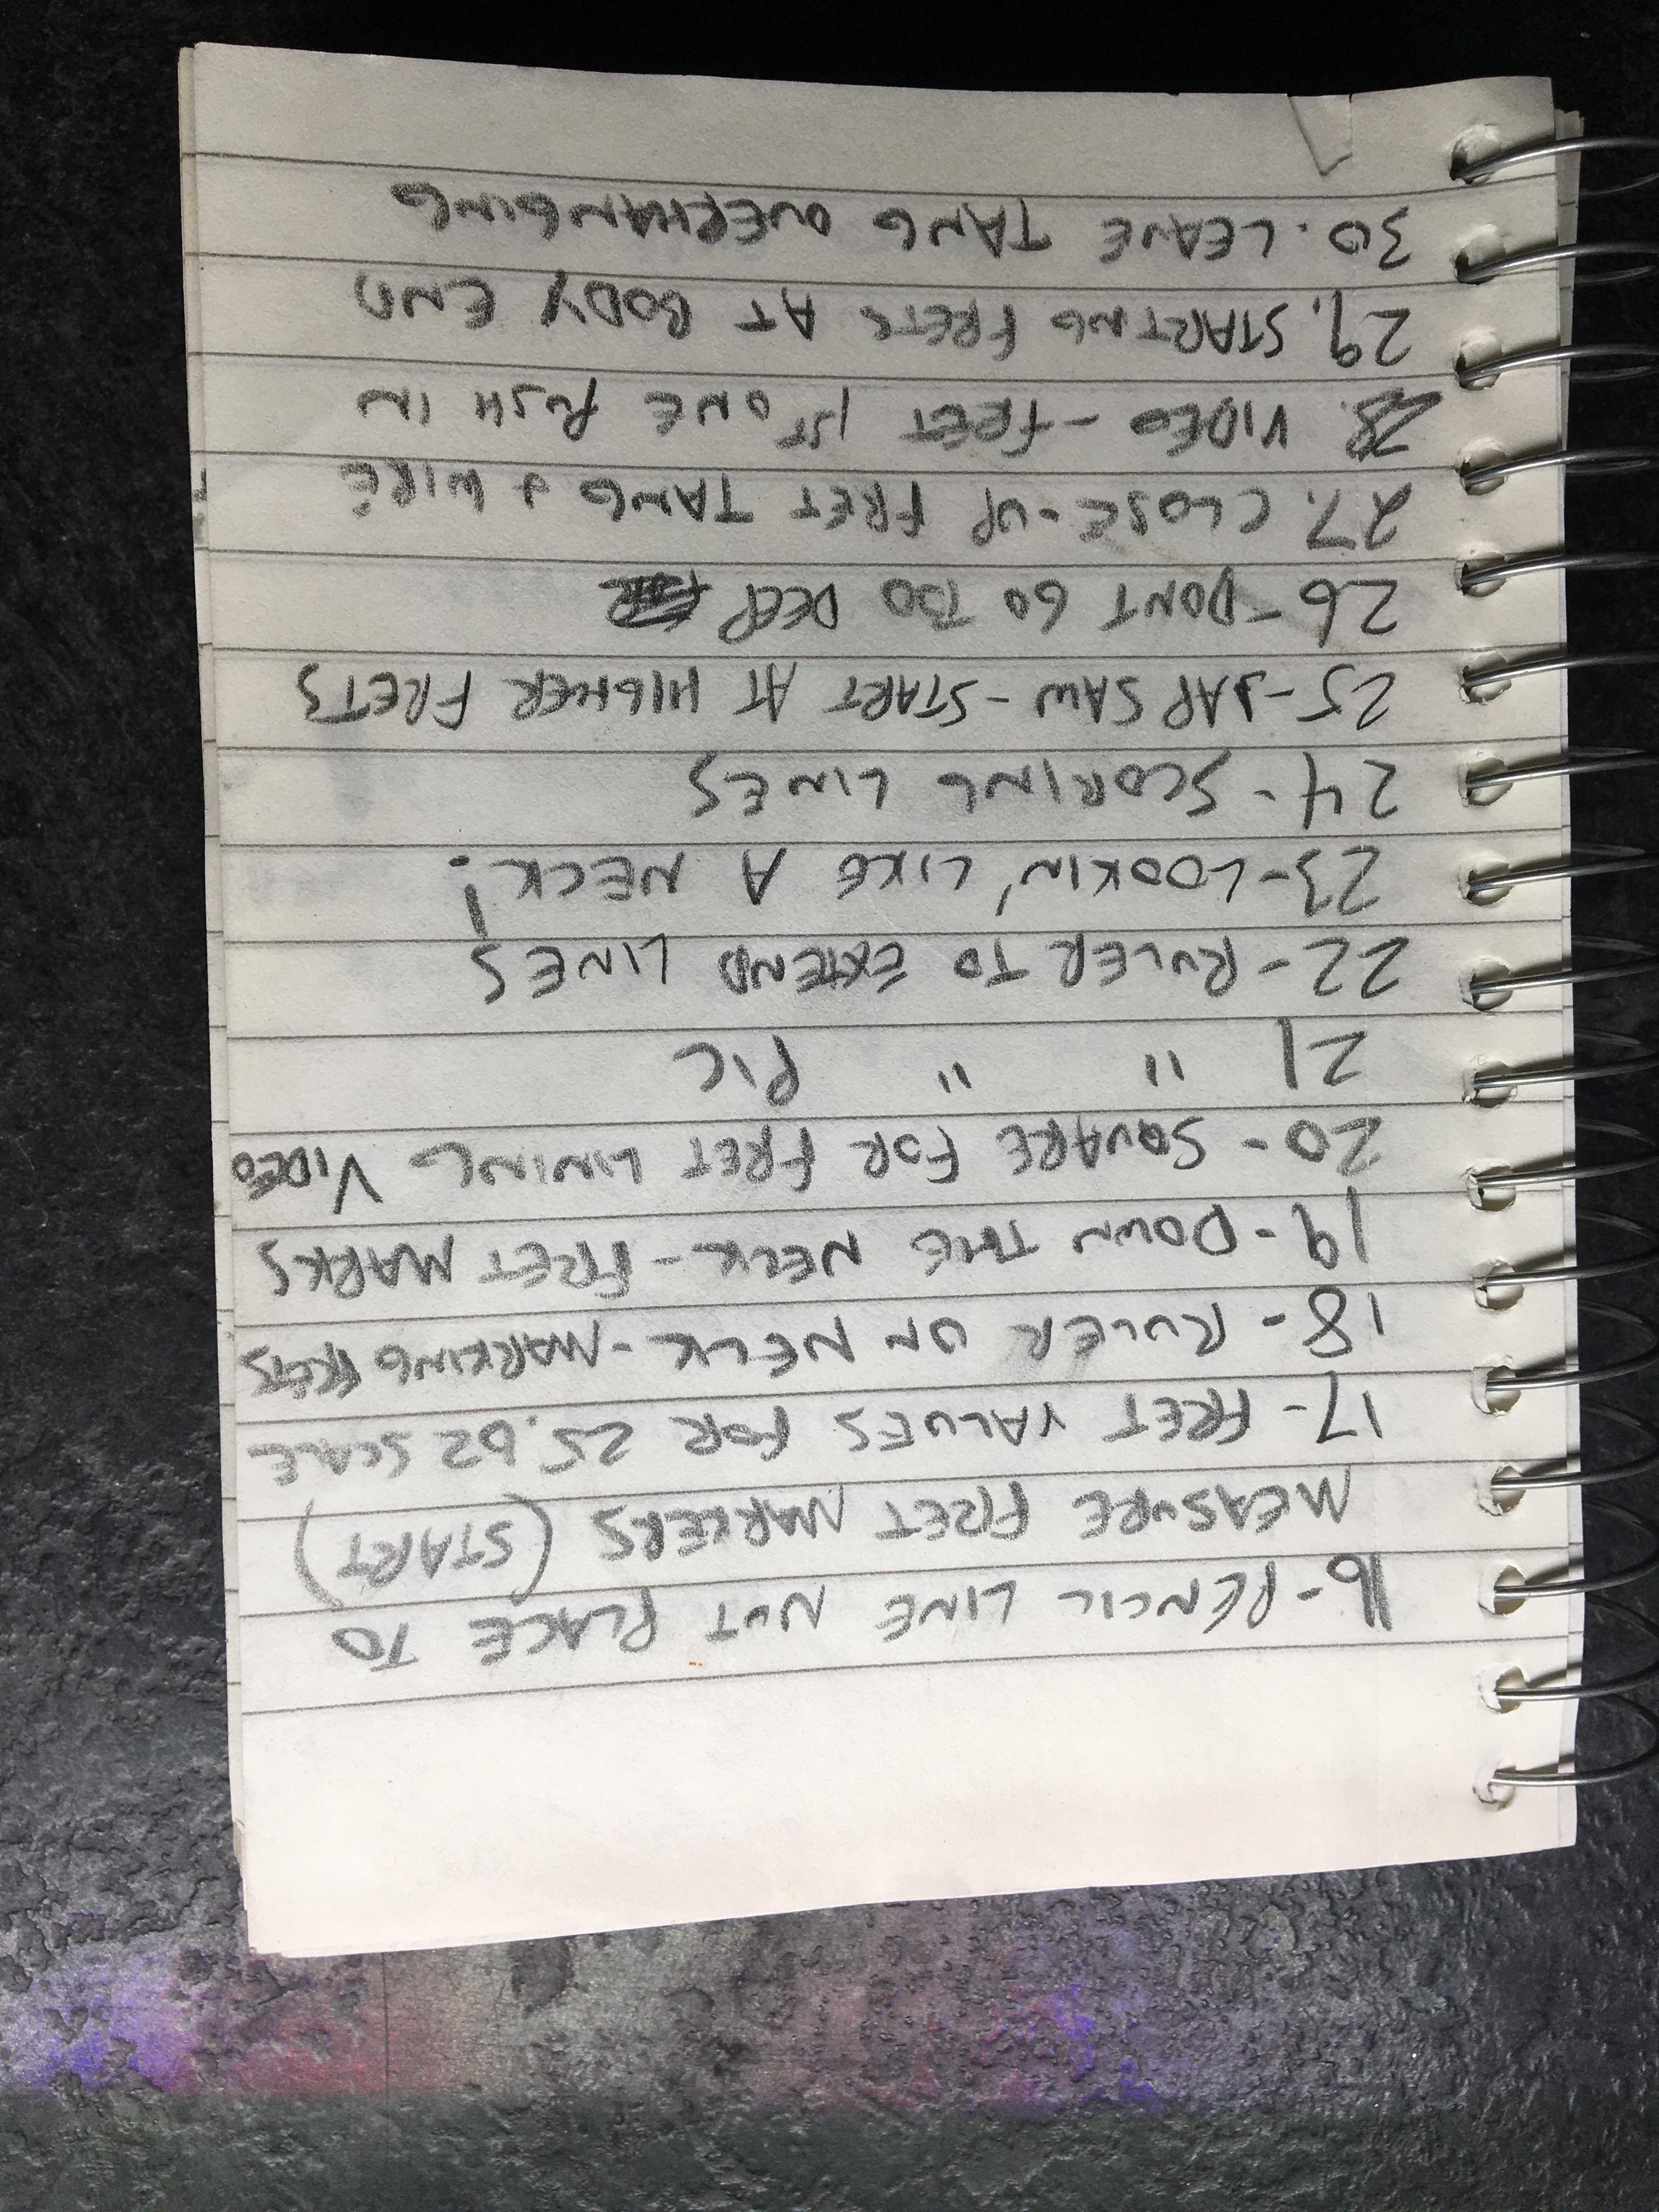 16-PENCIL LINE NUT PLACE TO
MEASURE FRET MARKERS (START)
17- FRET VALUES FOR 25.62 SCALE
18- RULER ON NECK-MARKING FRETS
19- DOWN THE NECK-FRET MARKS
20- SQUARE FOR FRET LINING VIDEO
21 " " PIC
22-RULER TO EXTEND LINES
23-LOOKIN' LIKE A NECK!
24- SCORING LINES
25-JAP SAW-START AT HIGHER FRETS
26-DONT GO TOO DEEP
27. CLOSE-UP FRET TANG & WIRE
28. VIDEO-FRET 1ST ONE PUSH IN
29. STARTING FRETS AT BODY END
30. LEAVE TANG OVERHANGING